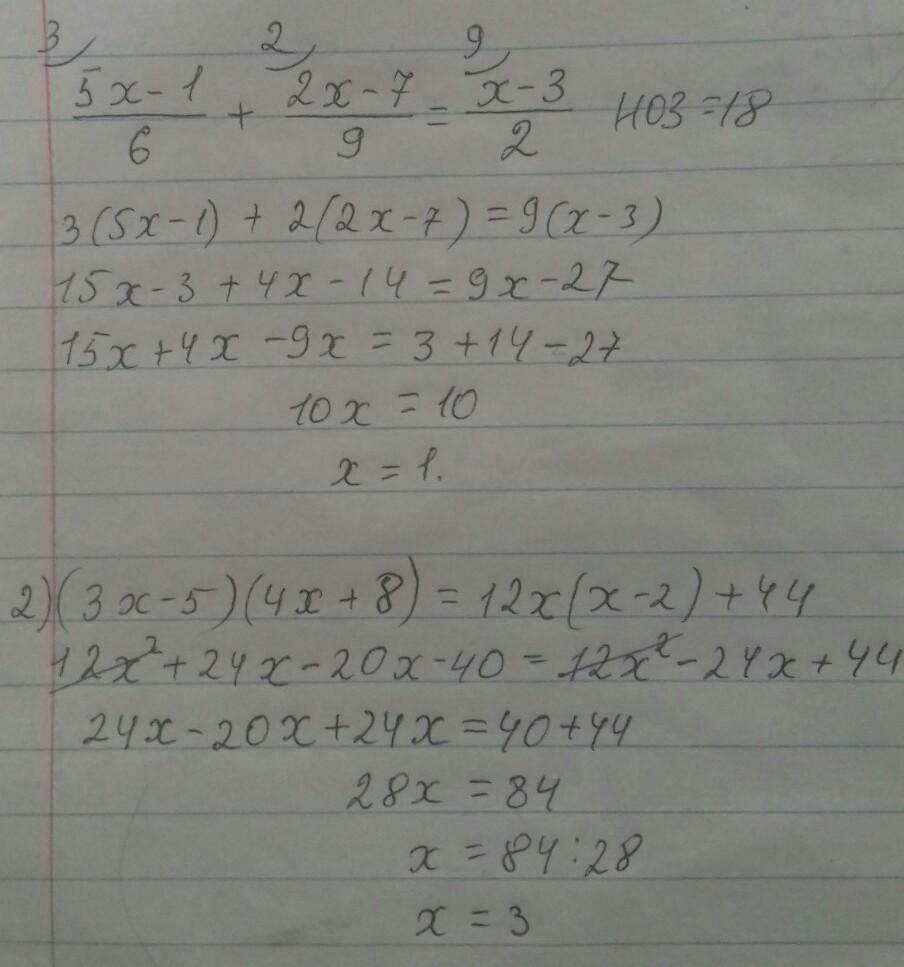 3 2 9
(5x-1)/6 + (2x-7)/9 = (x-3)/2 НОЗ=18
3(5x-1) + 2(2x-7) = 9(x-3)
15x-3+4x-14=9x-27
15x+4x-9x=3+14-27
10x=10
x=1.
2)(3x-5)(4x+8)=12x(x-2)+44
12x²+24x-20x-40=12x²-24x+44
24x-20x+24x=40+44
28x=84
x=84:28
x=3